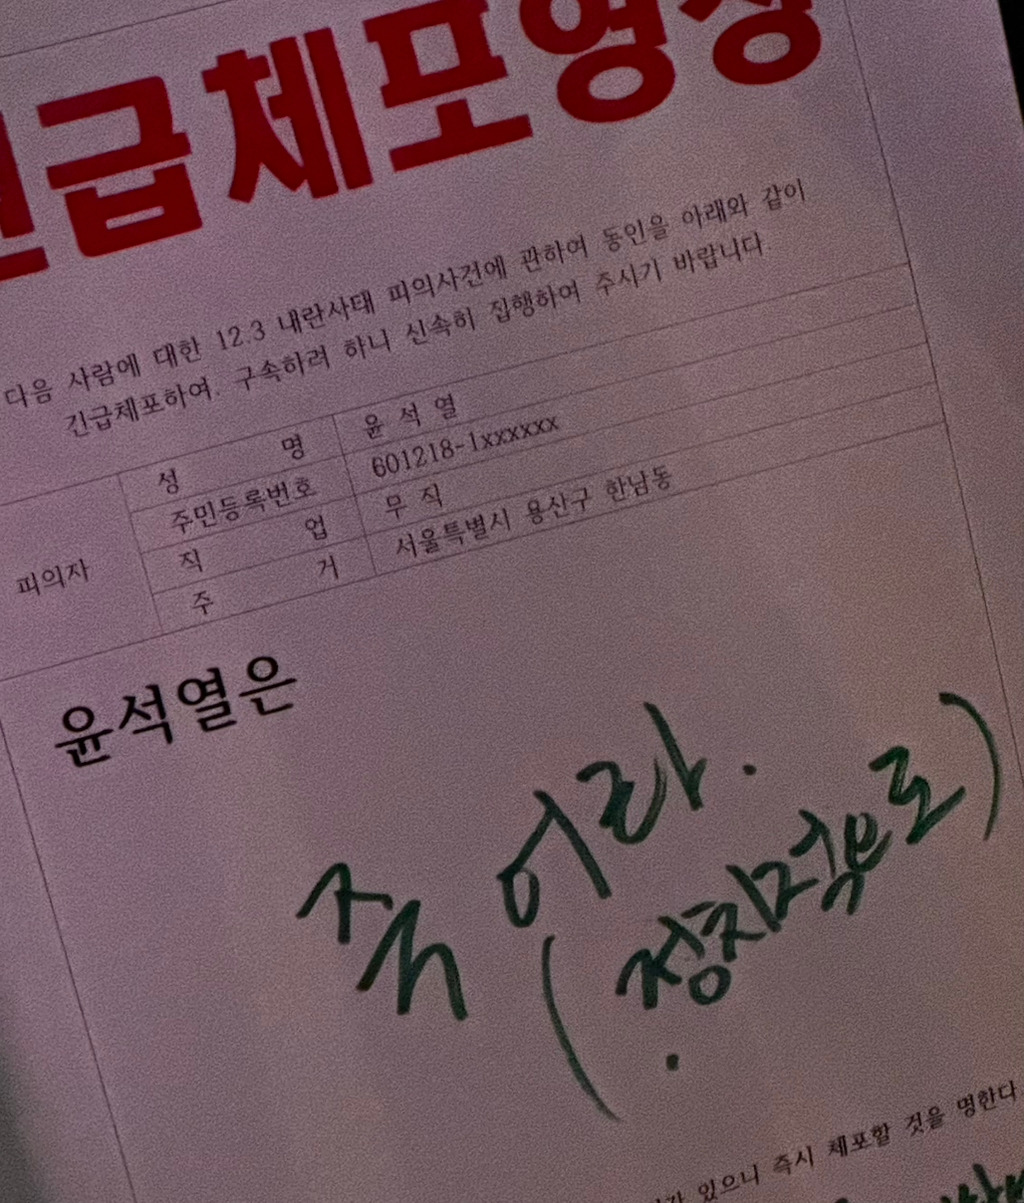 긴급체포영장
다음 사람에 대한 12.3 내란사태 피의사건에 관하여 동인을 아래와 같이
긴급체포하여, 구속하려 하니 신속히 집행하여 주시기 바랍니다.
피의자
성 명 윤 석 열
주민등록번호 601218-1xxxxxx
직 업 무 직
주 거 서울특별시 용산구 한남동
윤석열은
죽어라.
(정치적으로)
있으니 즉시 체포할 것을 명한다